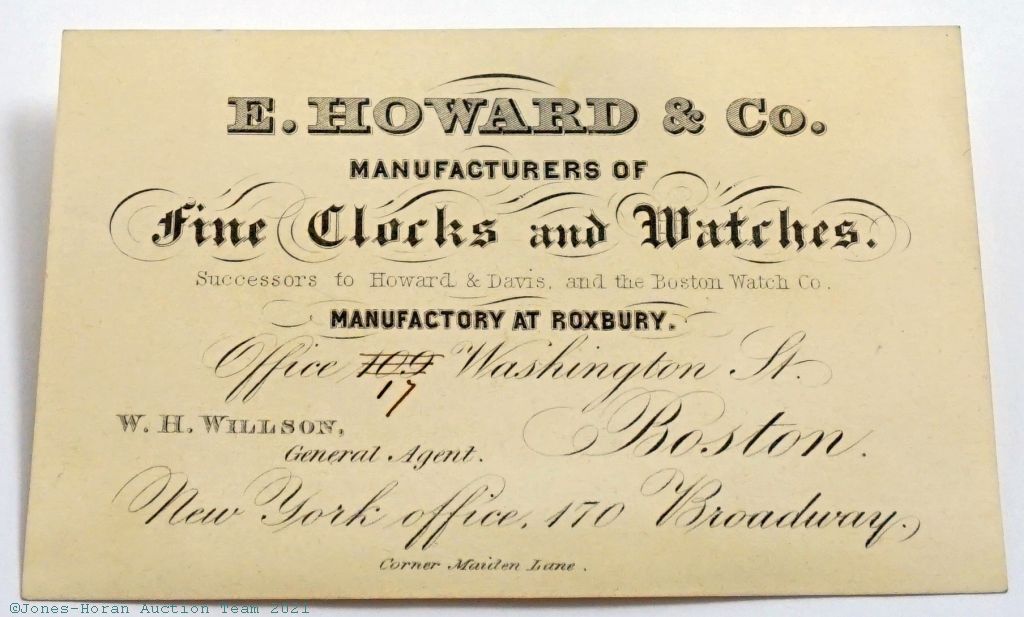 E. HOWARD & Co.
MANUFACTURERS OF
Fine Clocks and Watches.
Successors to Howard & Davis, and the Boston Watch Co.
MANUFACTORY AT ROXBURY.
Office 109 Washington St.
17
W. H. WILLSON,
General Agent.
Boston.
New York office, 170 Broadway,
Corner Maiden Lane.
©Jones-Horan Auction Team 2021